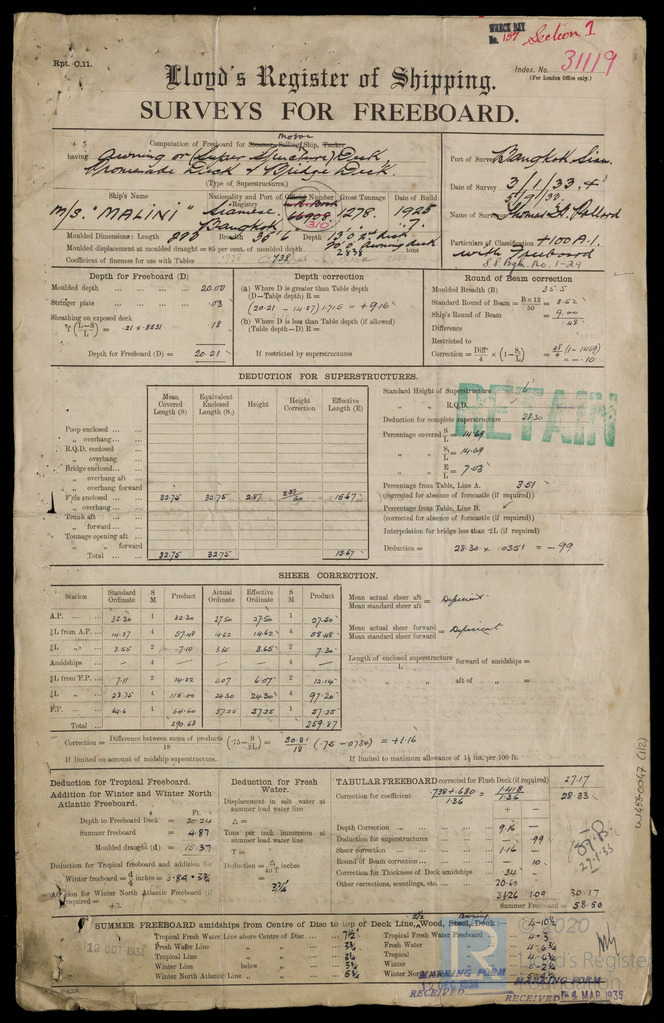 WRECK REV.
No. 157 Section 1
Rpt. C.11.
Index. No. 31119
(For London Office only.)
Lloyd's Register of Shipping.
SURVEYS FOR FREEBOARD.
Motor
Computation of Freeboard for Steamer, Sailing Ship, Tanker
having Awning or (Super Structure) Deck,
Promenade Deck & Bridge Deck.
(Type of Superstructures.)
Port of Survey Bangkok Siam.
Date of Survey 3/1/33. &
5/9/33.
Name of Surveyor Thomas St. Pollard
Particulars of Classification +100 A.1.
with Freeboard
Ship's Name
Nationality and Port of Registry
Official Number
Gross Tonnage
Date of Build
M/S. "MALINI"
Siamese.
Bangkok.
66908
310
1278.
7.
Moulded Dimensions: Length Breadth 35'6
Moulded displacement at moulded draught = 85 per cent. of moulded depth tons
Coefficient of fineness for use with Tables .738
Depth for Freeboard (D)
Moulded depth ... 20.00
Stringer plate ... .03
Sheathing on exposed deck
T (L-S/L) = .21 x .8531 .18
Depth for Freeboard (D) = 20.21
Depth correction
(a) Where D is greater than Table depth
(D—Table depth) R =
(20.21 - 14.87) 1.715 = +9.16
(b) Where D is less than Table depth (if allowed)
(Table depth—D) R =
If restricted by superstructures
Round of Beam correction
Moulded Breadth (B) 35.5
Standard Round of Beam = B×12/50 = 8.52
Ship's Round of Beam = 9.00
Difference .48
Restricted to
Correction = Diffce/4 × (1-S₁/L) = .48/4 (1-.1469)
= -.10
DEDUCTION FOR SUPERSTRUCTURES.
Mean Covered Length (S)
Equivalent Enclosed Length (S₁)
Height
Height Correction
Effective Length (E)
Poop enclosed ...
„ overhang ...
R.Q.D. enclosed
„ overhang
Bridge enclosed ...
„ overhang aft ...
„ overhang forward
F'cle enclosed ... 32.75 32.75 2.87 15.67
„ overhang ...
Trunk aft ...
„ forward ...
Tonnage opening aft ...
„ „ forward
Total ... 32.75 32.75 15.67
RETAIN
Standard Height of Superstructure 6'
„ „ R.Q.D.
Deduction for complete superstructure 28.30
Percentage covered S/L = 14.69
„ „ S₁/L = 14.69
„ „ E/L = 7.03
Percentage from Table, Line A. 3.51
(corrected for absence of forecastle (if required))
Percentage from Table, Line B.
(corrected for absence of forecastle (if required))
Interpolation for bridge less than ·2L (if required)
Deduction = 28.30 x .0351 = -.99
SHEER CORRECTION.
Station
Standard Ordinate
S M
Product
Actual Ordinate
Effective Ordinate
S M
Product
A.P. ... 32.30 1 32.30 27.50 27.50 1 27.50
⅙L from A.P. ... 14.37 4 57.48 14.62 14.62 4 58.48
⅓L „ ... 3.55 2 7.10 3.65 3.65 2 7.30
Amidships ... — 4 — — — 4 —
⅓L from F.P. ... 7.11 2 14.22 6.07 6.07 2 12.14
⅙L „ ... 28.75 4 115.00 24.30 24.30 4 97.20
F.P. ... 64.6 1 64.60 57.25 57.25 1 57.25
Total ... 290.68 259.87
Mean actual sheer aft / Mean standard sheer aft = Deficient
Mean actual sheer forward / Mean standard sheer forward = Deficient
Length of enclosed superstructure / L forward of amidships =
„ „ aft of „ =
Correction = Difference between sums of products/18 (·75 - S/2L) = 30.81/18 (.75 - .0734) = +1.16
If limited on account of midship superstructure.
If limited to maximum allowance of 1½ ins. per 100 ft.
Deduction for Tropical Freeboard.
Addition for Winter and Winter North Atlantic Freeboard.
Ft.
Depth to Freeboard Deck = 20.24
Summer freeboard = 4.87
Moulded draught (d) = 15.37
Deduction for Tropical freeboard and addition for
Winter freeboard = d/4 inches = 3.84 = 3¾
Addition for Winter North Atlantic Freeboard (if required) = +2
Deduction for Fresh Water.
Displacement in salt water at summer load water line
Δ =
Tons per inch immersion at summer load water line
T =
Deduction = Δ/40 T inches
= 3¾
TABULAR FREEBOARD corrected for Flush Deck (if required) 27.17
Correction for coefficient .738+.680/1.36 = 1.418/1.36 28.33
+ —
Depth Correction ... 9.16 —
Deduction for superstructures ... — .99
Sheer correction ... 1.16 —
Round of Beam correction ... — .10
Correction for Thickness of Deck amidships .34 —
Other corrections, scantlings, etc. ... 20.60
31.26 1.09 30.17
Summer Freeboard = 58.50
SUMMER FREEBOARD amidships from Centre of Disc to top of Deck Line, Wood, Steel, Deck:— 4-10½
Tropical Fresh Water Line above Centre of Disc ... 7½"
Fresh Water Line „ „ ... 3¾
Tropical Line „ „ ... 3¾
Winter Line below „ ... 3¾
Winter North Atlantic Line „ „ ... 5¾
Tropical Fresh Water Freeboard 4-3
Fresh Water „ 4-6¾
Tropical „ 4-6¾
Winter „
Winter North
MARKING FORM
RECEIVED
MARKING FORM
RECEIVED 4 MAR 1935
© 2020
Lloyd's Register
W457-0047 (1/2)